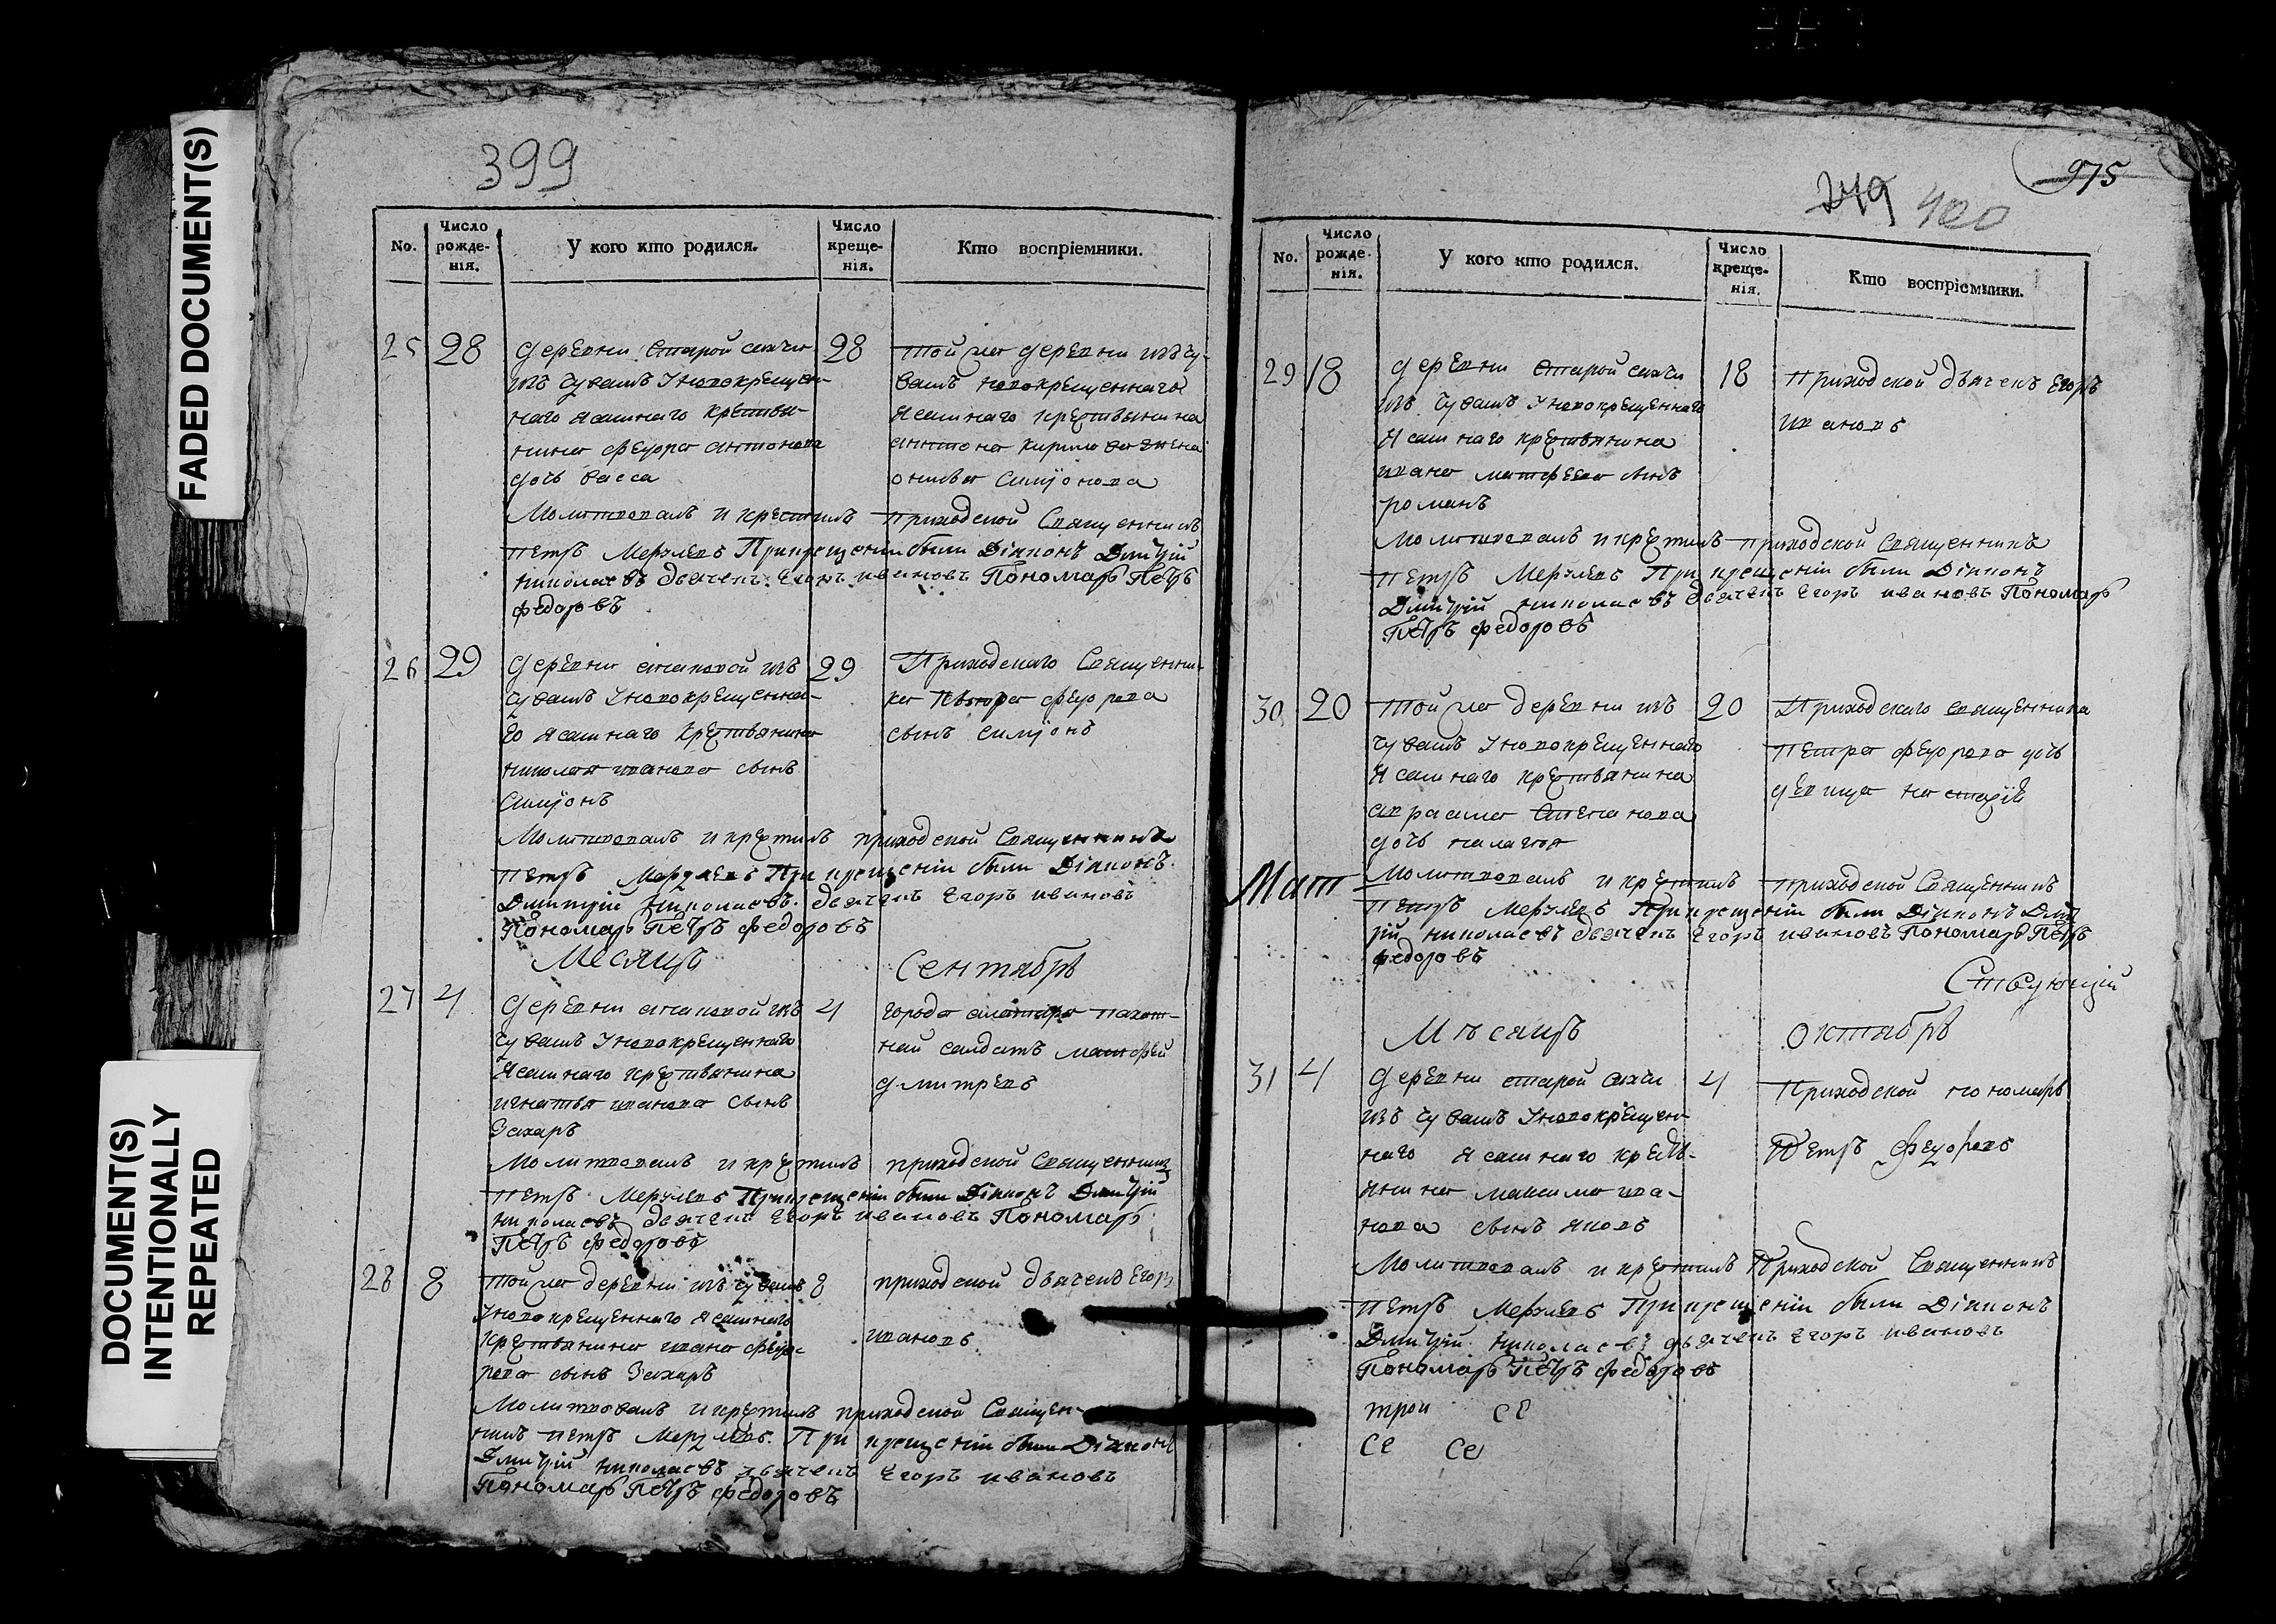 FADED DOCUMENT(S)
DOCUMENT(S)
INTENTIONALLY
REPEATED
399
No.
Число рожде-нія.
У кого кто родился.
Число креще-нія.
Кто воспріемники.
25 28
деревни Старой сахчи
изъ чувашъ новокрещен-
наго ясашнаго крестья-
нина феудора антонова
дочь васса
28
той же деревни изъ чу-
вашъ новокрещеннаго
ясашнаго крестьянина
антона кирилова жена
Симионова
Молитвовалъ и крестилъ приходской Священникъ
петръ Мерзлевъ При крещении были Діаконъ Дмитрій
николаевъ дьячекъ Егоръ ивановъ Пономарь Петръ
федоровъ
26 29
деревни изъ
чувашъ новокрещенна-
го ясашнаго крестьянина
николая иванова сынъ
Симионъ
29
Приходскаго Священни-
ка петра феудорова
сынъ симионъ
Молитвовалъ и крестилъ приходской Священникъ
петръ Мерзлевъ При крещеніи были Діаконъ
Дмитрій николаевъ дьячекъ Егоръ ивановъ
Пономарь Петръ федоровъ
Месяцъ Сентябрь
27 4
деревни изъ
чувашъ новокрещеннаго
ясашнаго крестьянина
игнатья иванова сынъ
Захаръ
4
города алатыря пахот-
най салдатъ матфей
дмитревъ
Молитвовалъ и крестилъ приходской Священникъ
петръ Мерзлевъ При крещеніи были Діаконъ Дмитрій
николаевъ дьячекъ Егоръ ивановъ Пономарь
Петръ федоровъ
28 8
той же деревни изъ чувашъ
новокрещеннаго ясашнаго
крестьянина ивана феудо-
рова сынъ Захаръ
8
приходской дьячекъ Егоръ
ивановъ
Молитвовалъ и крестилъ приходской Священ-
никъ петръ Мерзлевъ. При крещеніи были Діаконъ
Дмитрій николаевъ дьячекъ Егоръ ивановъ
Пономарь Петръ федоровъ
975
249 400
No.
Число рожде-нія.
У кого кто родился.
Число креще-нія.
Кто воспріемники.
29 18
деревни Старой сахчи
изъ чувашъ новокрещеннаго
ясашнаго крестьянина
ивана матфеева сынъ
романъ
18
приходской дьячекъ Егоръ
ивановъ
Молитвовалъ и крестилъ приходской Священникъ
петръ Мерзлевъ При крещеніи были Діаконъ
Дмитрій николаевъ дьячекъ Егоръ ивановъ Пономарь
Петръ федоровъ
30 20
той же деревни изъ
чувашъ новокрещеннаго
ясашнаго крестьянина
Степанова
дочь палагея
20
Приходскаго священника
петра феудорова дочь
девица настасія
Мат
Молитвовалъ и крестилъ приходской Священникъ
петръ Мерзлевъ При крещеніи были Діаконъ Дмит
рій николаевъ дьячекъ Егоръ ивановъ Пономарь Петръ
федоровъ
Мѣсяцъ октябрь
31 4
деревни старой сахчи
изъ чувашъ новокрещен-
наго ясашнаго кресть-
янина максима ива-
нова сынъ яковъ
4
Приходской пономарь
Петръ Феудоровъ
Молитвовалъ и крестилъ Приходской Священникъ
петръ Мерзлевъ При крещеніи были Діаконъ
Дмитрій николаевъ дьячекъ Егоръ ивановъ
Пономарь Петръ федоровъ
трои се
се се